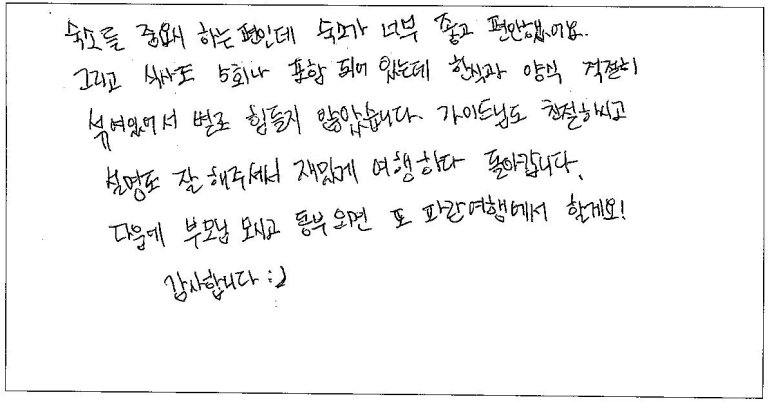 숙소를 중요시 하는 편인데 숙소가 너무 좋고 편안했어요.
그리고 식사도 5회나 포함 되어 있는데 한식과 양식 적절히
섞여있어서 별로 힘들지 않았습니다. 가이드님도 친절하시고
설명도 잘 해주셔서 재밌게 여행하다 돌아갑니다.
다음에 부모님 모시고 동부오면 또 파란여행에서 할게요!
감사합니다 :)